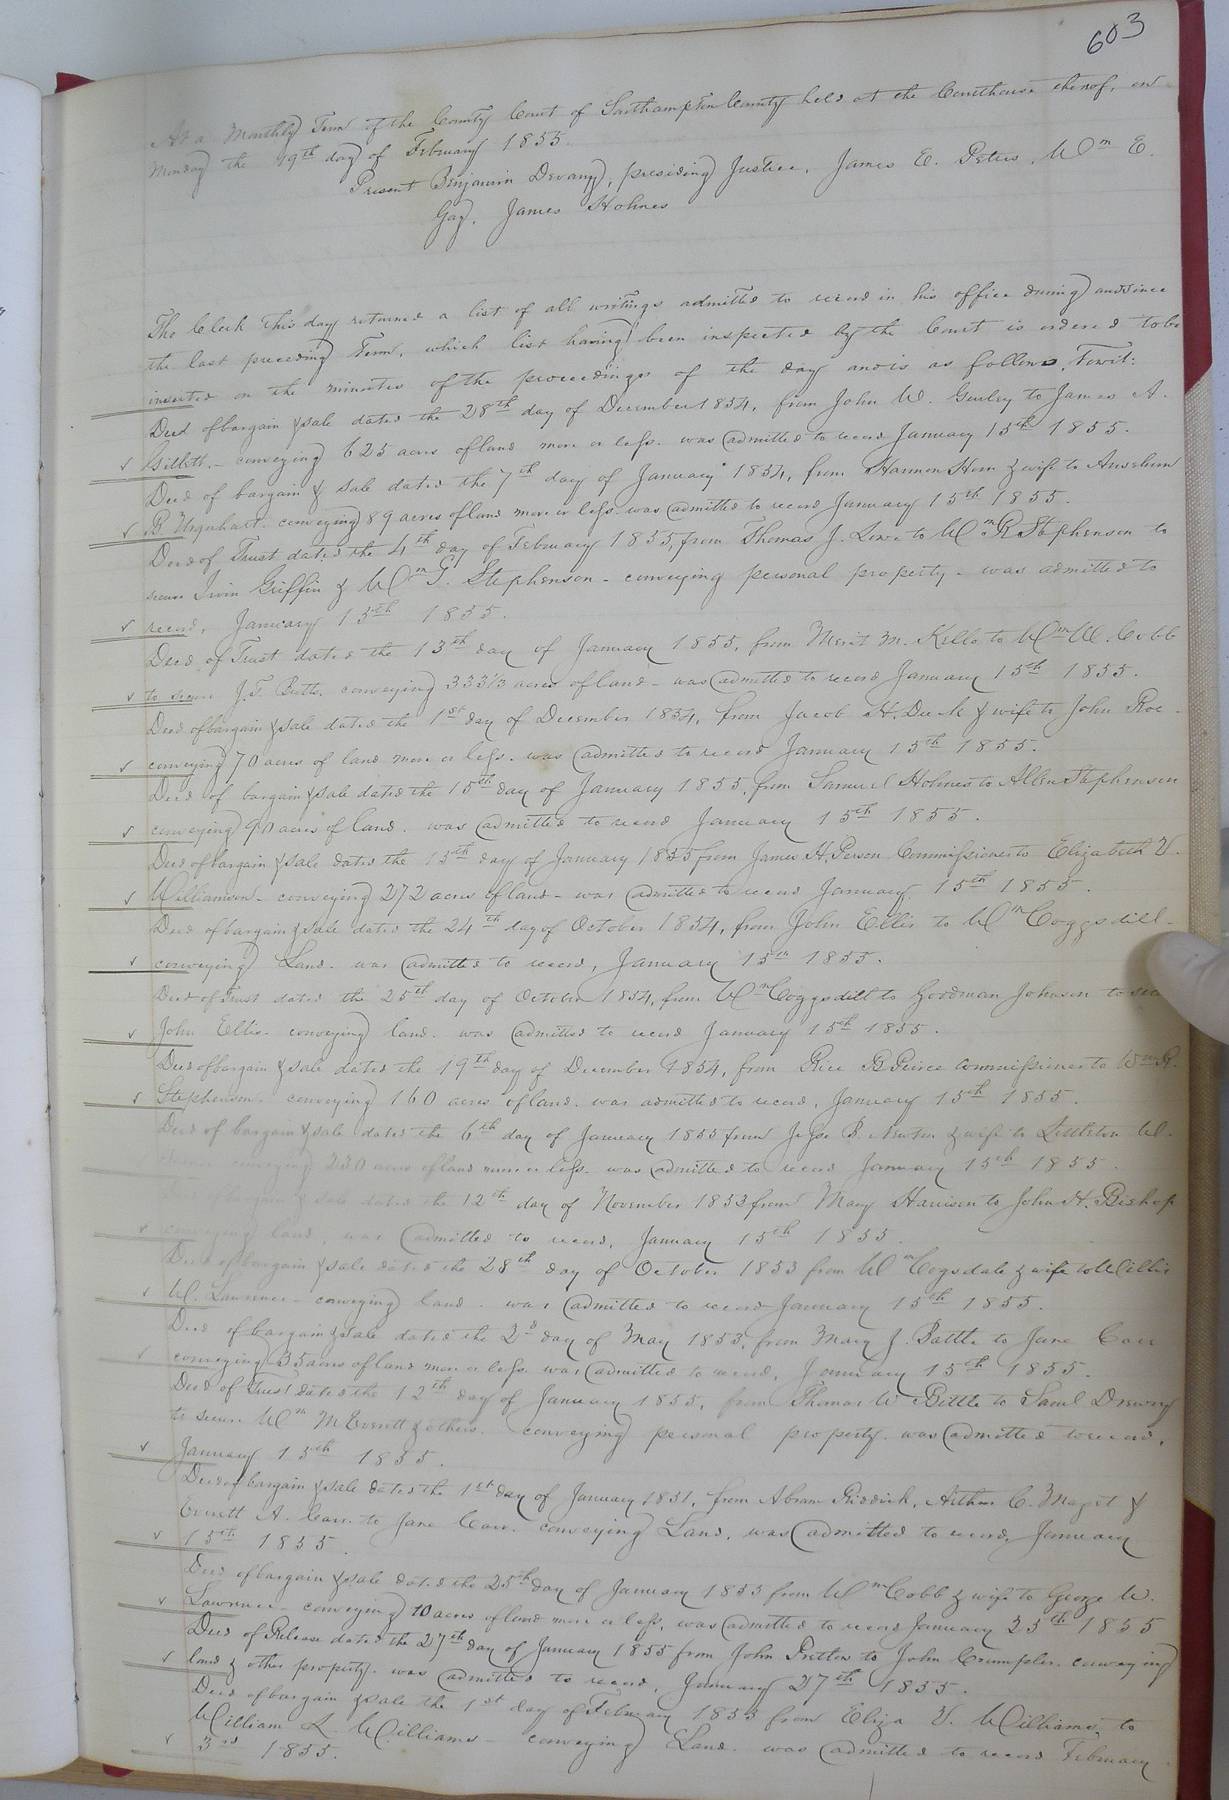 603
At a Monthly Term of the County Court of Southampton County held at the Courthouse thereof, on
Monday the 19th day of February 1855.
Present Benjamin Devany, presiding Justice, James E. Peters, Wm E.
Gay, James Holmes
The Clerk this day returned a list of all writings admitted to record in his office during and since
the last preceding Term, which list having been inspected by the Court is ordered to be
inserted on the minutes of the proceedings of the day and is as follows, Towit:
Deed of bargain & sale dated the 28th day of December 1854, from John W. Gurley to James A.
Gillett - conveying 625 acres of land more or less. was admitted to record January 15th 1855.
Deed of bargain & sale dated the 7th day of January 1854, from Harmon Horn & wife to Anselum
B. Urquhart - conveying 89 acres of land more or less was admitted to record January 15th 1855.
Deed of Trust dated the 4th day of February 1855, from Thomas J. Lowe to Wm R Stephenson to
secure Irvin Griffin & Wm G. Stephenson - conveying personal property - was admitted to
record, January 15th 1855.
Deed of Trust dated the 13th day of January 1855, from Merit M. Kello to Wm W. Cobb
to secure J. T. Butts. conveying 333 1/3 acres of land - was admitted to record January 15th 1855.
Deed of bargain & sale dated the 1st day of December 1854, from Jacob H. Duck & wife to John Roe -
conveying 70 acres of land more or less. was admitted to record January 15th 1855.
Deed of bargain & sale dated the 15th day of January 1855, from Samuel Holmes to Allen Stephenson
conveying 90 acres of land. was admitted to record January 15th 1855.
Deed of bargain & sale dated the 15th day of January 1855 from James H. Person Commissioner to Elizabeth V.
Williamson - conveying 272 acres of land - was admitted to record January 15th 1855.
Deed of bargain & sale dated the 24th day of October 1854, from John Ellis to Wm Coggsdill -
conveying Land. was admitted to record, January 15th 1855.
Deed of Trust dated the 25th day of October 1854, from Wm Coggsdill to Goodman Johnson to
John Ellis - conveying land. was admitted to record January 15th 1855.
Deed of bargain & sale dated the 19th day of December 1854, from Rice B Peirce commissioner to Wm R.
Stephenson - conveying 160 acres of land. was admitted to record, January 15th 1855.
Deed of bargain & sale dated the 6th day of January 1855 from Jesse B. Newton & wife to Littleton W.
conveying 230 acres of land more or less. was admitted to record January 15th 1855.
bargain & sale dated the 12th day of November 1853 from Mary Harrison to John H. Bishop
conveying land, was admitted to record, January 15th 1855.
Deed of bargain & sale dated the 28th day of October 1853 from Wm Cogsdale & wife to Willis
W. Lawrence - conveying land. was admitted to record January 15th 1855.
Deed of bargain & sale dated the 2d day of May 1853, from Mary J. Battle to Jane Carr
conveying 35 acres of land more or less was admitted to record, January 15th 1855.
Deed of Trust dated the 12th day of January 1855, from Thomas W Bittle to Saml Drewry
to secure Wm M Everett & others. conveying personal property. was admitted to record,
January 15th 1855.
Deed of bargain & sale dated the 1st day of January 1851, from Abram Riddick, Arthur C. Maget &
Everett A. Carr. to Jane Carr. conveying Land, was admitted to record, January
15th 1855.
Deed of bargain & sale dated the 25th day of January 1855 from Wm Cobb & wife to George W.
Lawrence - conveying 10 acres of land more or less, was admitted to record January 25th 1855
Deed of Release dated the 27th day of January 1855 from John Pretlow to John Crumpler. conveying
land & other property. was admitted to record, January 27th 1855.
Deed of bargain & sale the 1st day of February 1853 from Eliza V. Williams, to
William L. Williams - conveying Land. was admitted to record February
3rd 1855.